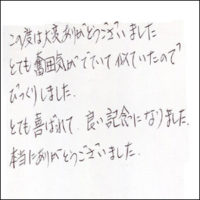 この度は大変ありがとうございました
とても雰囲気がでていて似ていたので
びっくりしました.
とても喜ばれて 良い記念になりました.
本当にありがとうございました.